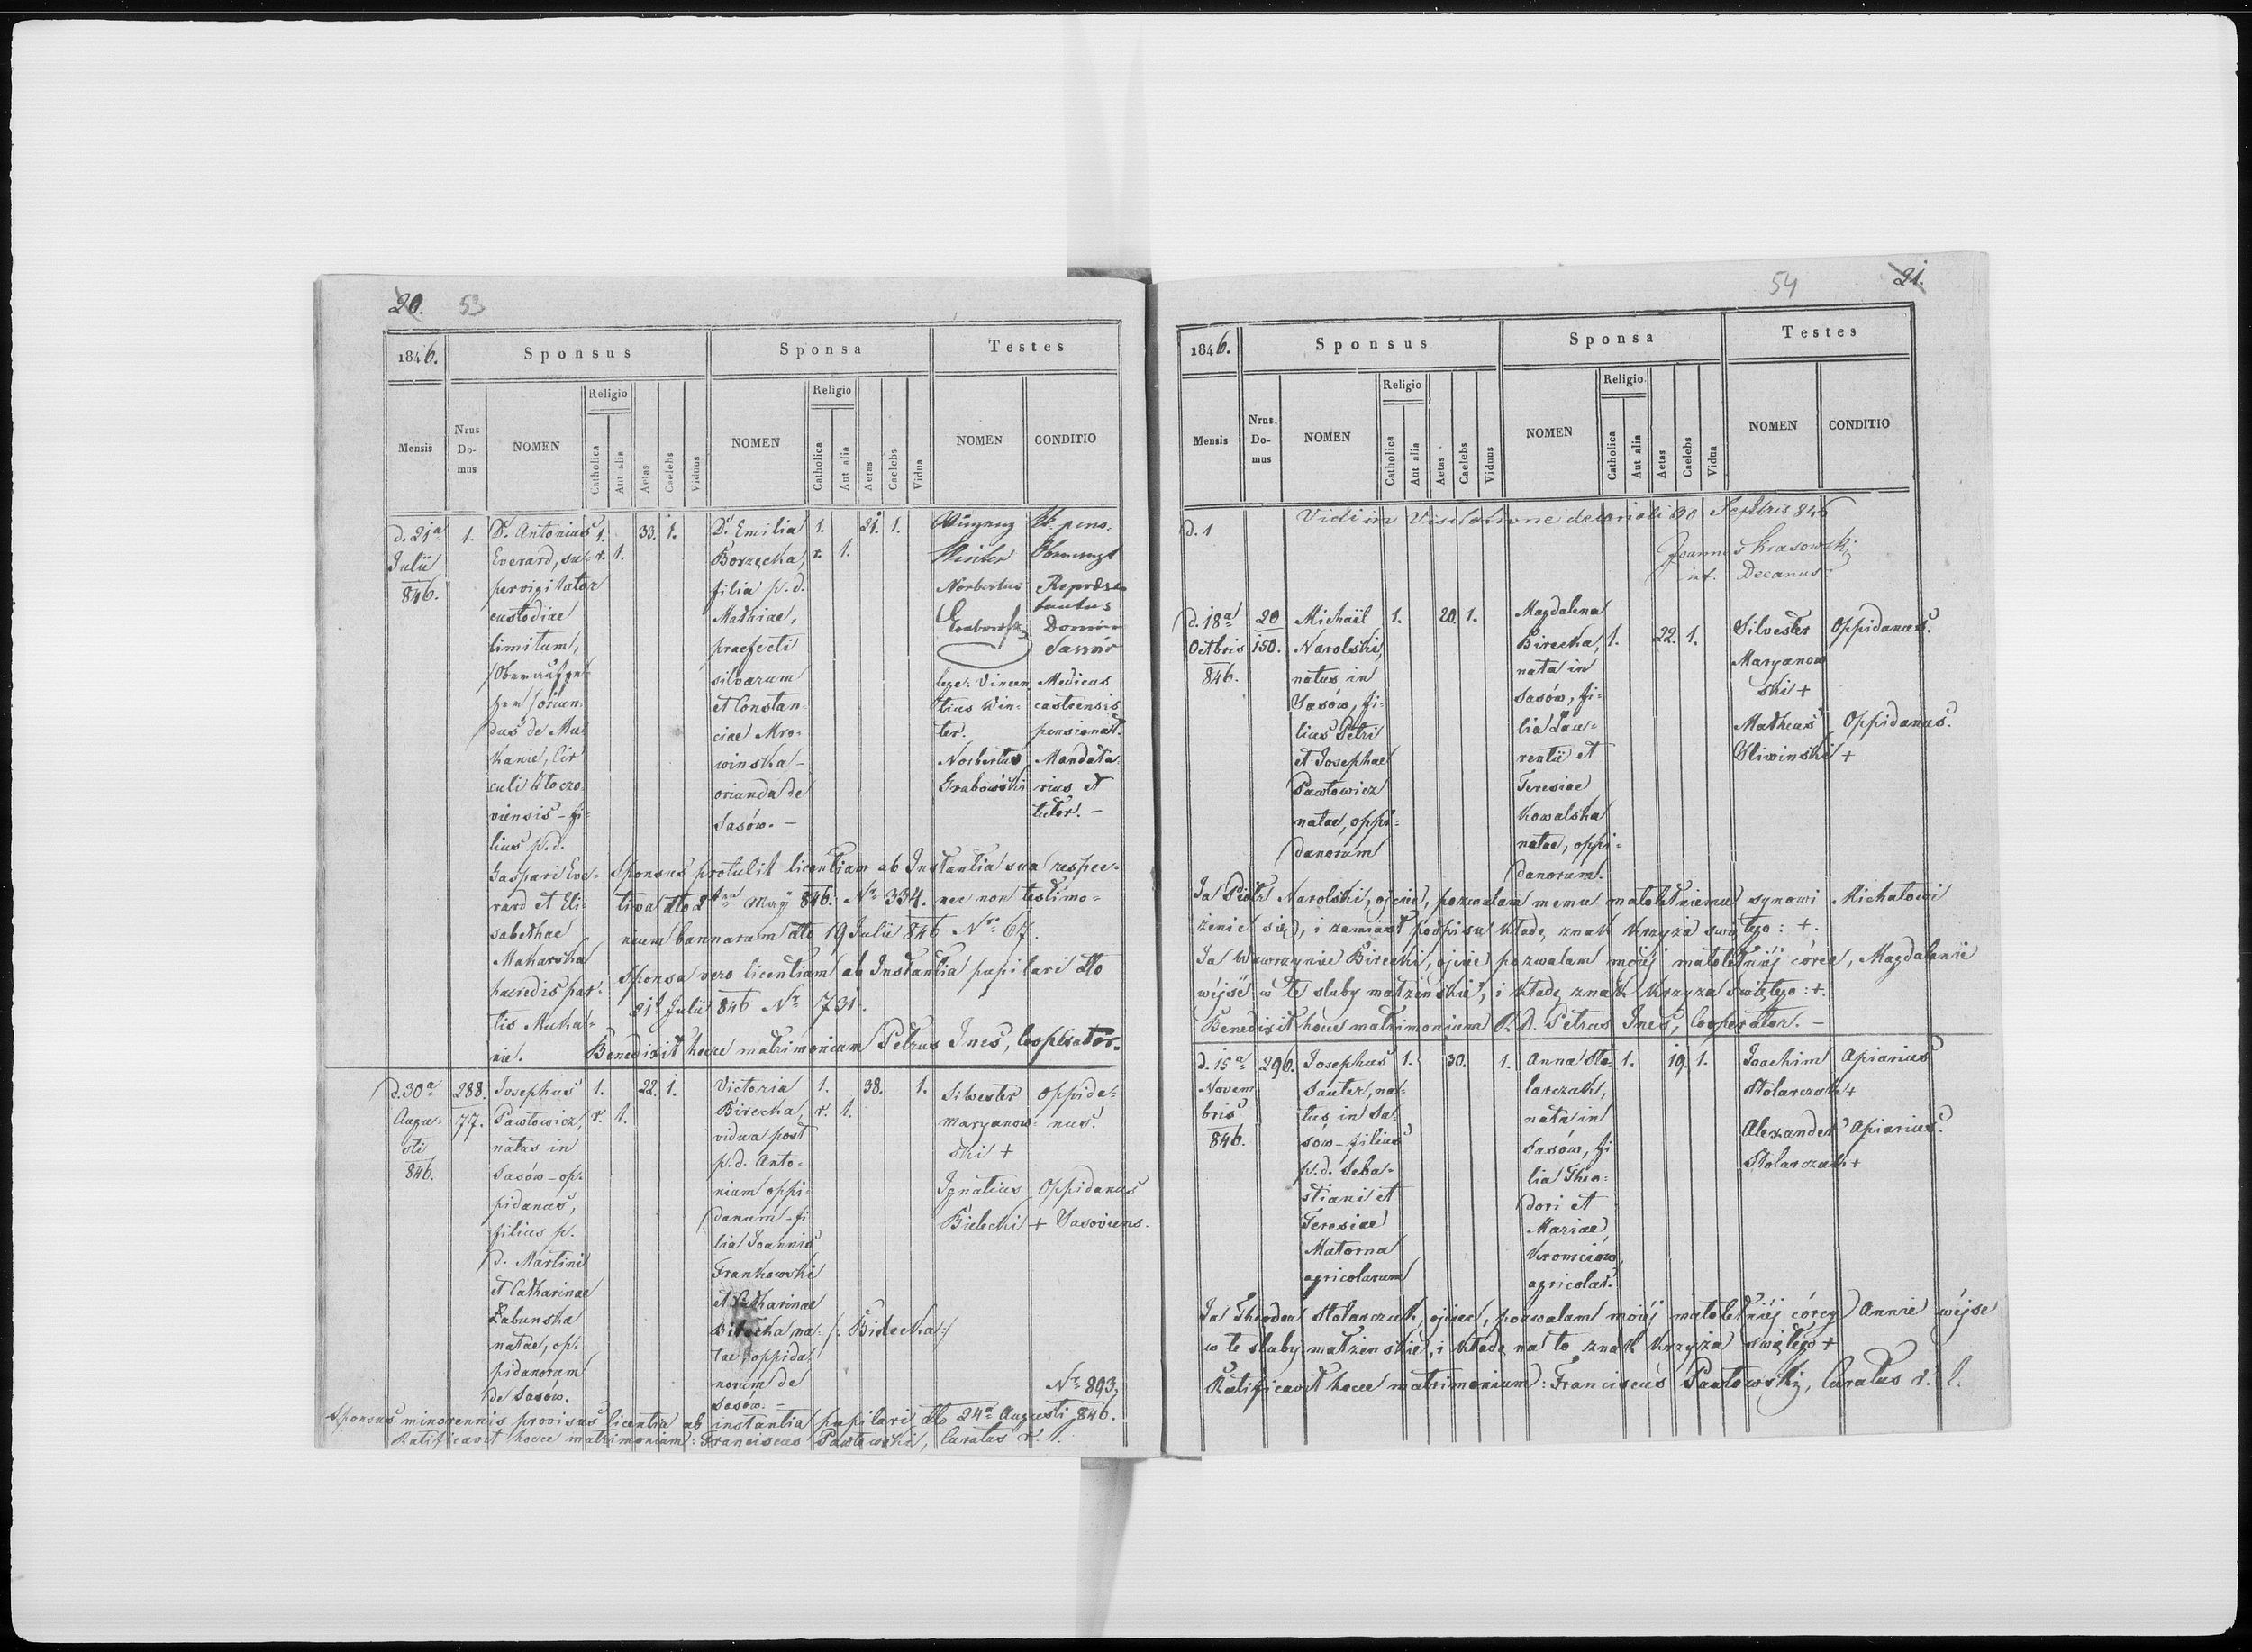 20. 53
1846. Sponsus Sponsa Testes
Mensis Nrus Do- mus NOMEN Religio Catholica Aut alia Aetas Caelebs Viduus NOMEN Religio Catholica Aut alia Aetas Caelebs Vidua NOMEN CONDITIO
d. 21a
Julii
846.
1.
D. Antonius
Everard, su-
pervigitator
custodiae
limitum,
oriun-
dus de Mu-
kanie, Cir
culi Złoczo-
viensis - fi-
lius p. d.
Gaspari Eve-
rard et Eli-
sabethae
Makarska
haeredis par-
tis Mukä-
nie.
1.
r. 1.
33. 1.
D. Emilia
Borzęcka,
filia p. d.
Mathiae,
praefecti
silvarum
et Constan-
ciae Mro-
winska -
oriunda de
Sasów. -
1.
r. 1.
21. 1.
Winter
Norbertus
Grabowski
lege: Vincen
tius Win-
ter.
Norbertus
Grabowski
k. pens.
Repräsen
tantus
Domin
Sassów
Medicus
castrensis
pensionat.
Mandata-
rius et
tutor. -
Sponsus protulit licentiam ab Instantia sua respec-
tiva dto May 846. Nr. 334. nec non testimo-
nium bannarum dto 19 Julii 846 Nro 67.
Sponsa vero licentiam ab Instantia pupilari dto
21 Julii 846 Nr. 731.
Benedixit hocce matrimonium Petrus Ines, Cooperator.
d. 30a
Augu-
sti
846.
288.
77.
Josephus
Pawłowicz,
natus in
Sasów - op-
pidanus,
filius p.
d. Martini
et Catharinae
Łabunska
natae, op-
pidanorum
de Sasów.
1.
r. 1.
22. 1.
Victoria
Birecka,
vidua post
p. d. Anto-
nium oppi-
danum - fi
lia Joannis
Frankowski
et Catharinae
na-
tae, oppida-
norum de
Sasów. -
/: Bidecka :/
1.
r. 1.
38. 1.
Silvester
Maryanow-
ski +
Ignatius
Bielecki +
Oppida-
nus.
Oppidanus
Sasoviens.
Nr. 893.
Sponsus minorennis provisus licentia ab instantia pupilari dto 24a Augusti 846.
Ratificavit hocce matrimonium: Franciscus Pawłowski, Curatus r. l.
54 21.
1846. Sponsus Sponsa Testes
Mensis Nrus. Do- mus NOMEN Religio Catholica Aut alia Aetas Caelebs Viduus NOMEN Religio. Catholica Aut alia Aetas Caelebs Vidua NOMEN CONDITIO
d. 1
Vidi in Visitatione decanali 30 Septbris 846
Joannes Krasowski
Decanus
d. 18a
Octbris
846.
20
150.
Michaël
Narolski,
natus in
Sasów, fi-
lius Petri
et Josephae
Pawłowicz
natae, oppi-
danorum
1. 20. 1.
Magdalena
Birecka,
nata in
Sasów, fi-
lia Lau-
rentii et
Teresiae
Kowalska
natae, oppi-
danorum.
1. 22. 1.
Silvester
Maryanow
ski +
Matheus
Sliwinski +
Oppidanus.
Oppidanus.
Ja Piotr Narolski, ojciec, pozwalam memu małoletniemu synowi Michałowi
żenić się, i zamiast podpisu kładę znak krzyża swiętego: +.
Ja Wawrzyniec Birecki, ojciec pozwalam mojéj małoletniéj córce, Magdalenie
wejsć w te sluby małżenskie, i kładę znak krzyża świętego: +.
Benedixit hocce matrimonium R. D. Petrus Ines, Cooperator. -
d. 15a
Novem
bris
846.
296.
Josephus
Sauter, na-
tus in Sa-
sów - filius
p. d. Seba-
stiani et
Teresiae
Matorna
agricolarum
1. 30. 1.
Anna Sto-
larczak,
nata in
Sasów, fi
lia Theo-
dori et
Mariae
Kromciów,
agricolar.
1. 19. 1.
Joachim
Stolarczak +
Alexander
Stolarczak +
Apiarius
Apiarius.
Ja Theodor Stolarczuk, ojciec, pozwalam mojéj małoletniéj córcy Annie wéjsc
w te sluby małżenskie, i kładę na to znak krzyża swiętego +
Ratificavit hocce matrimonium: Franciscus Pawłowski, Curatus r. l.